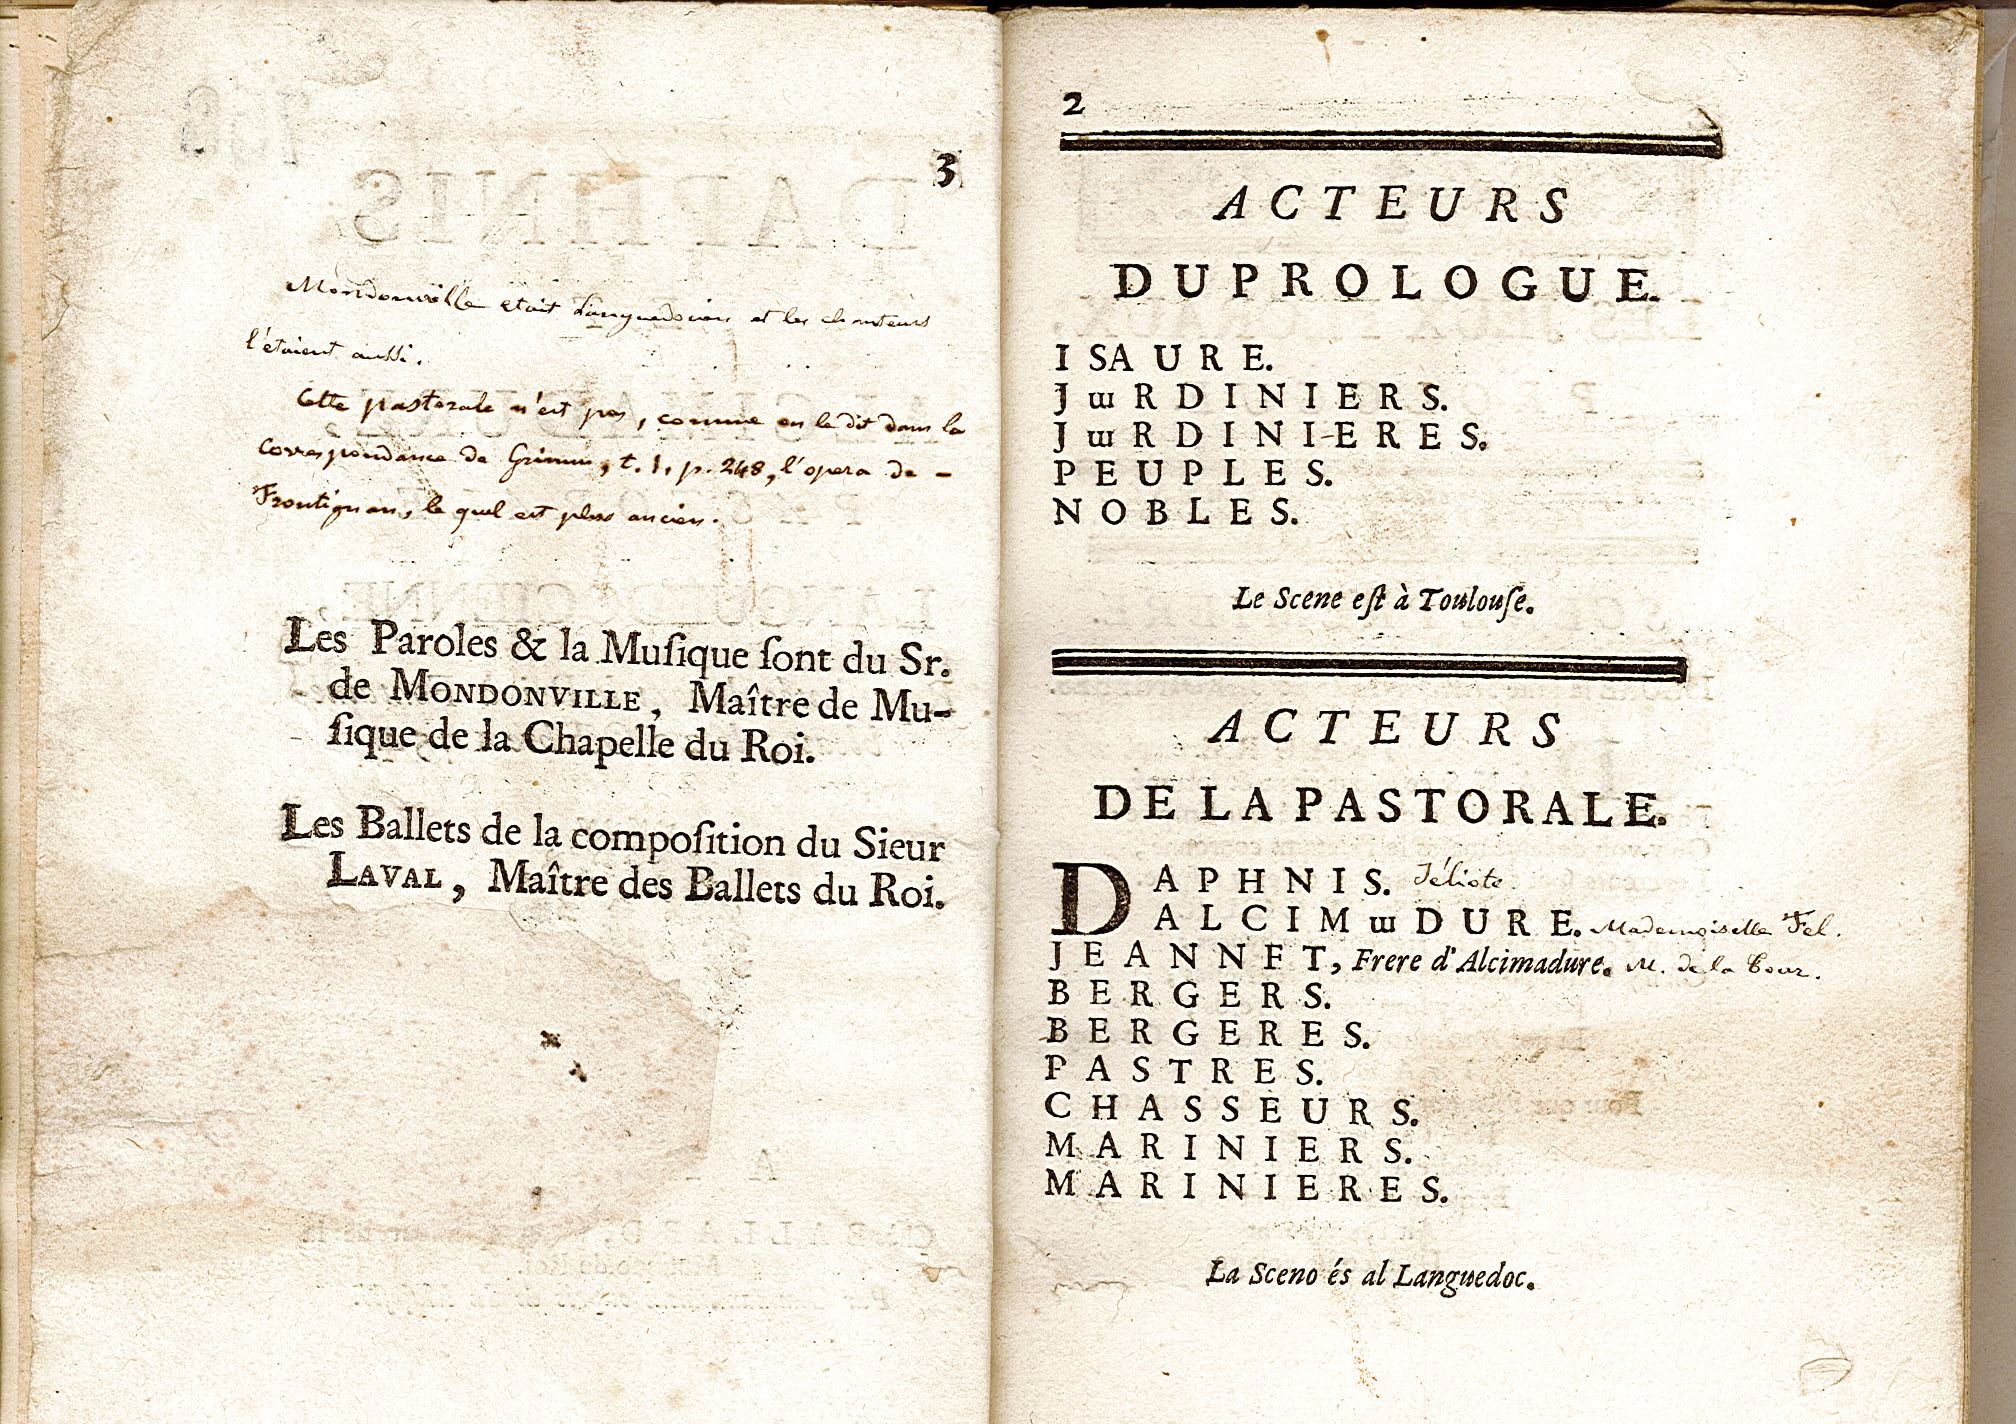 3
Mondonville etait Languedocien et les chanteurs
l'étaient aussi.
Cette pastorale n'est pas, comme on le dit dans la
correspondance de Grimm, t. 1, p. 248, l'opera de -
Frontignan, le quel est plus ancien.
Les Paroles & la Muſique ſont du Sr.
de MONDONVILLE, Maître de Mu-
ſique de la Chapelle du Roi.
Les Ballets de la compoſition du Sieur
LAVAL, Maître des Ballets du Roi.
2
ACTEURS
DU PROLOGUE.
ISAURE.
JɯRDINIERS.
JɯRDINIERES.
PEUPLES.
NOBLES.
Le Scene eſt à Toulouſe.
ACTEURS
DE LA PASTORALE.
DAPHNIS. Jéliote.
ALCIMɯDURE. Mademoiselle Fel.
JEANNFT, Frere d'Alcimadure. M. de la Tour.
BERGERS.
BERGERES.
PASTRES.
CHASSEURS.
MARINIERS.
MARINIERES.
La Sceno és al Languedoc.